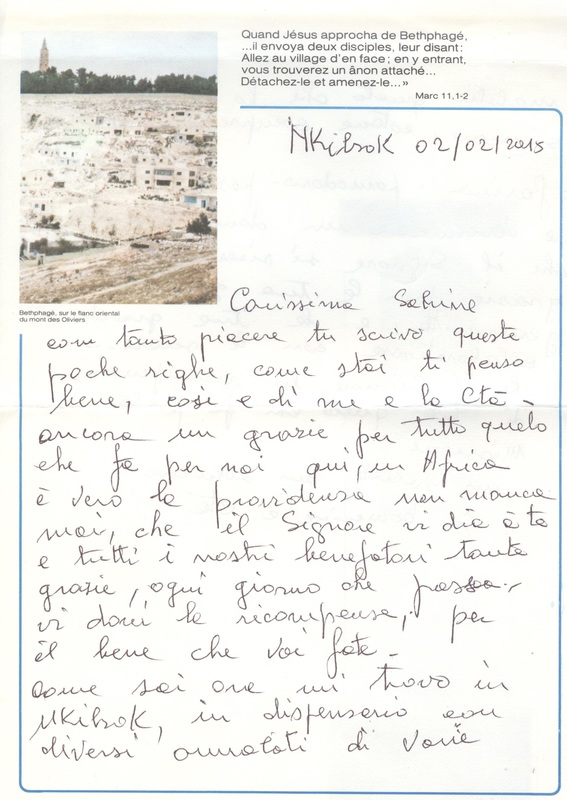 Quand Jésus approcha de Bethphagé,
...il envoya deux disciples, leur disant:
Allez au village d'en face; en y entrant,
vous trouverez un ânon attaché...
Détachez-le et amenez-le...»
Marc 11,1-2
NKibok 02/02/2015
Bethphagé, sur le flanc oriental
du mont des Oliviers
Carissima Sabrine
com tanto piacere tu scrivo queste
poche righe, come stai ti penso
bene, così e di me e la Ctà -
ancora un grazie per tutto quelo
che fa per noi qui, in Africa
è vero la providensa non manca
mai, che il Signore vi dia a te
e tutti i nostri benefatori tante
grazie, ogni giorno che passa,
vi doni la ricompensa, per
il bene che voi fate -
come sai ora mi trovo in
NKibok, in dispensario con
diversi ammalati di varie